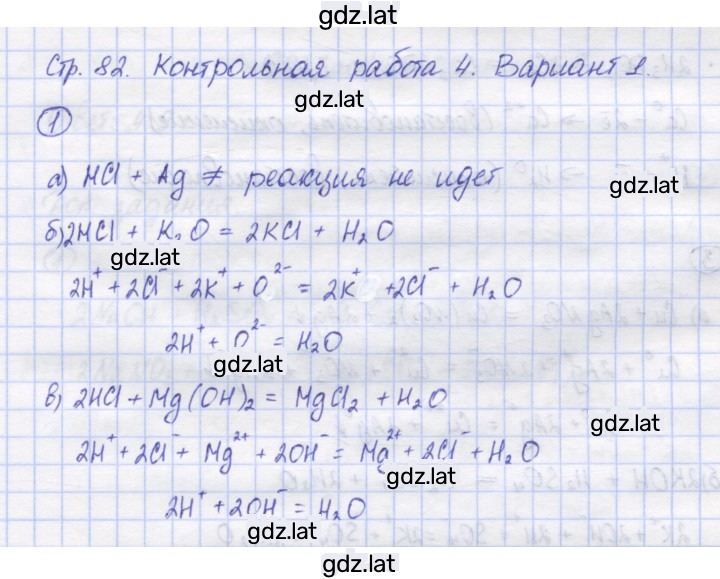 gdz.lat
Стр. 82. Контрольная работа 4. Вариант 1.
gdz.lat
1
а) HCl + Ag ≠ реакция не идет
gdz.lat
б) 2HCl + K₂O = 2KCl + H₂O
gdz.lat
2H⁺ + 2Cl⁻ + 2K⁺ + O²⁻ = 2K⁺ + 2Cl⁻ + H₂O
2H⁺ + O²⁻ = H₂O
gdz.lat
в) 2HCl + Mg(OH)₂ = MgCl₂ + H₂O
gdz.lat
2H⁺ + 2Cl⁻ + Mg²⁺ + 2OH⁻ = Mg²⁺ + 2Cl⁻ + H₂O
gdz.lat
2H⁺ + 2OH⁻ = H₂O
gdz.lat
gdz.lat